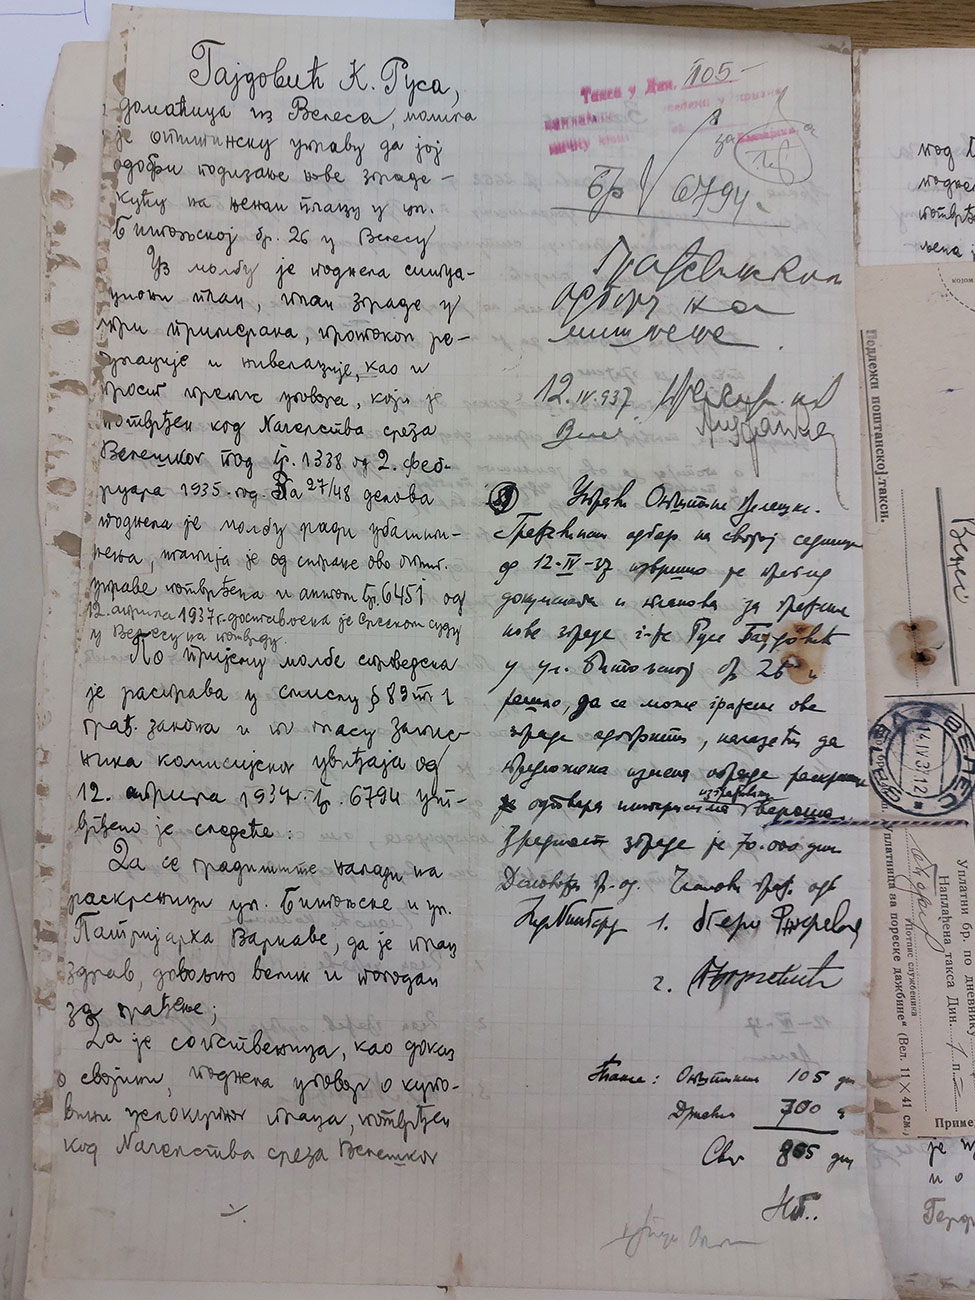 Гајдовић К. Руса,
домаћица из Велеса, молила
је општинску управу да јој
одобри подизање нове зграде –
кућу на њеном плацу у ул.
Битољској бр. 26 у Велесу
Уз молбу је поднела ситуа-
циони план, план зграде у
три примерака, протокол ре-
гулације и нивелације, као и
прост препис уговора, који је
потврђен код Начелства среза
Велешког под бр. 1338 од 2. феб-
руара 1935. год. За 27/48 делова
поднела је молбу ради убашти-
њења, тапија је од стране ово општ.
управе потврђена и актом бр. 6451 од
12. априла 1937 г. достављена је Среском суду
у Велесу на потврду.
По пријему молбе спроведена
је расправа у смислу § 89 т 1
грађ. закона и по гласу запис-
ника комисијског увиђаја од
12. априла 1937. бр. 6794 утв-
рђено је следеће:
Да се градилиште налази на
раскрсници ул. Битољске и ул.
Патријарха Варнаве, да је плац
здрав, довољно велик и погодан
за грађење;
Да је сопственица, као доказ
о својини, поднела уговор о купо-
вини целокупног плаца, потврђен
код Начелства среза Велешког
Такса у Дин. 105 –
Бр 6794.
Грађевинском
одбору на
мишљење.
12.IV.937
Велес
Управи Општине Велешке.
Грађевински одбор на својој седници
од 12-IV-37 извршио је преглед
докумената и планова за грађење
нове зграде г-ђе Русе Гајдовић
у ул. Битољској бр 26 и
решио, да се може грађење ове
зграде одобрити, налазећи да
предложена измена зграде раскрснице
одговара интересима изграђивању вароши.
Вредност зграде је 70.000 дин
Деловођа гр. од. Чланови грађ. одб
1.
2.
Таксе: Општинска 105 дин
Државна 700 "
Свега 805 дин
Подлежи поштанској такси.
Велес
ВЕЛЕС 14 IV 37 12 ВЕЛЕС
Уплатница на пореске дажбине" (Вел. 11 × 41 см.)
Потпис службеника
Наплаћена такса Дин.
Уплатни бр. по дневнику
Приме
под